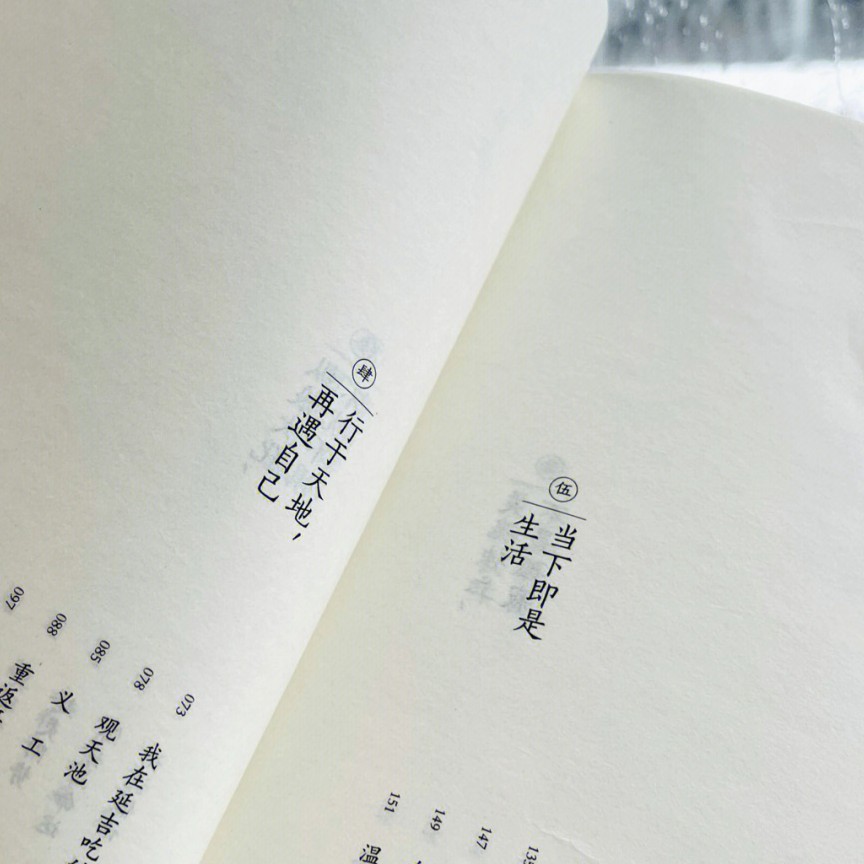 肆
行于天地，
再遇自己
073 我在延吉吃
078 观天池
085 义工
088 重返
097
伍
当下即是
生活
147
149
151 温